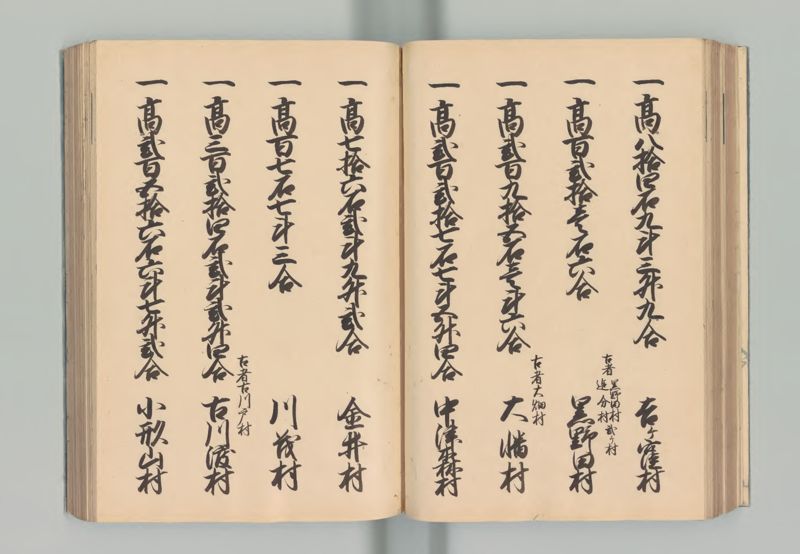 一 高八拾四石九斗三升九合 吉ヶ窪村
一 高百弐拾壱石六合 黒野田村
古者 黒野田村 弐ヶ村
追分村
一 高弐百九拾五石壱斗六合 大幡村
古者大畑村
一 高弐百弐拾七石七斗五升四合 中津森村
一 高七拾六石弐斗九升弐合 金井村
一 高百七石七斗三合 川茂村
一 高三百弐拾四石弐斗弐升四合 古川渡村
古者古川戸村
一 高弐百五拾六石六斗七升弐合 小形山村